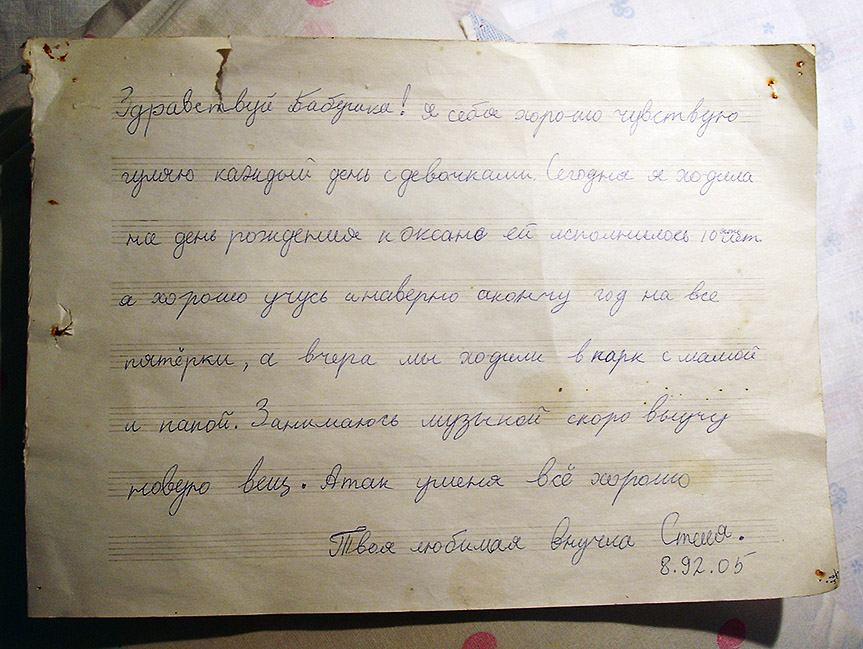 Здравствуй Бабушка! Я себя хорошо чувствую
гуляю каждый день с девочками. Сегодня я ходила
на день рождения к Оксане ей исполнилось 10 лет.
я хорошо учусь и наверно окончу год на все
пятёрки, а вчера мы ходили в парк с мамой
и папой. Занимаюсь музыкой скоро выучу
новую вещ. А так уменя всё хорошо
Твоя любимая внучка Стеша.
8.92.05